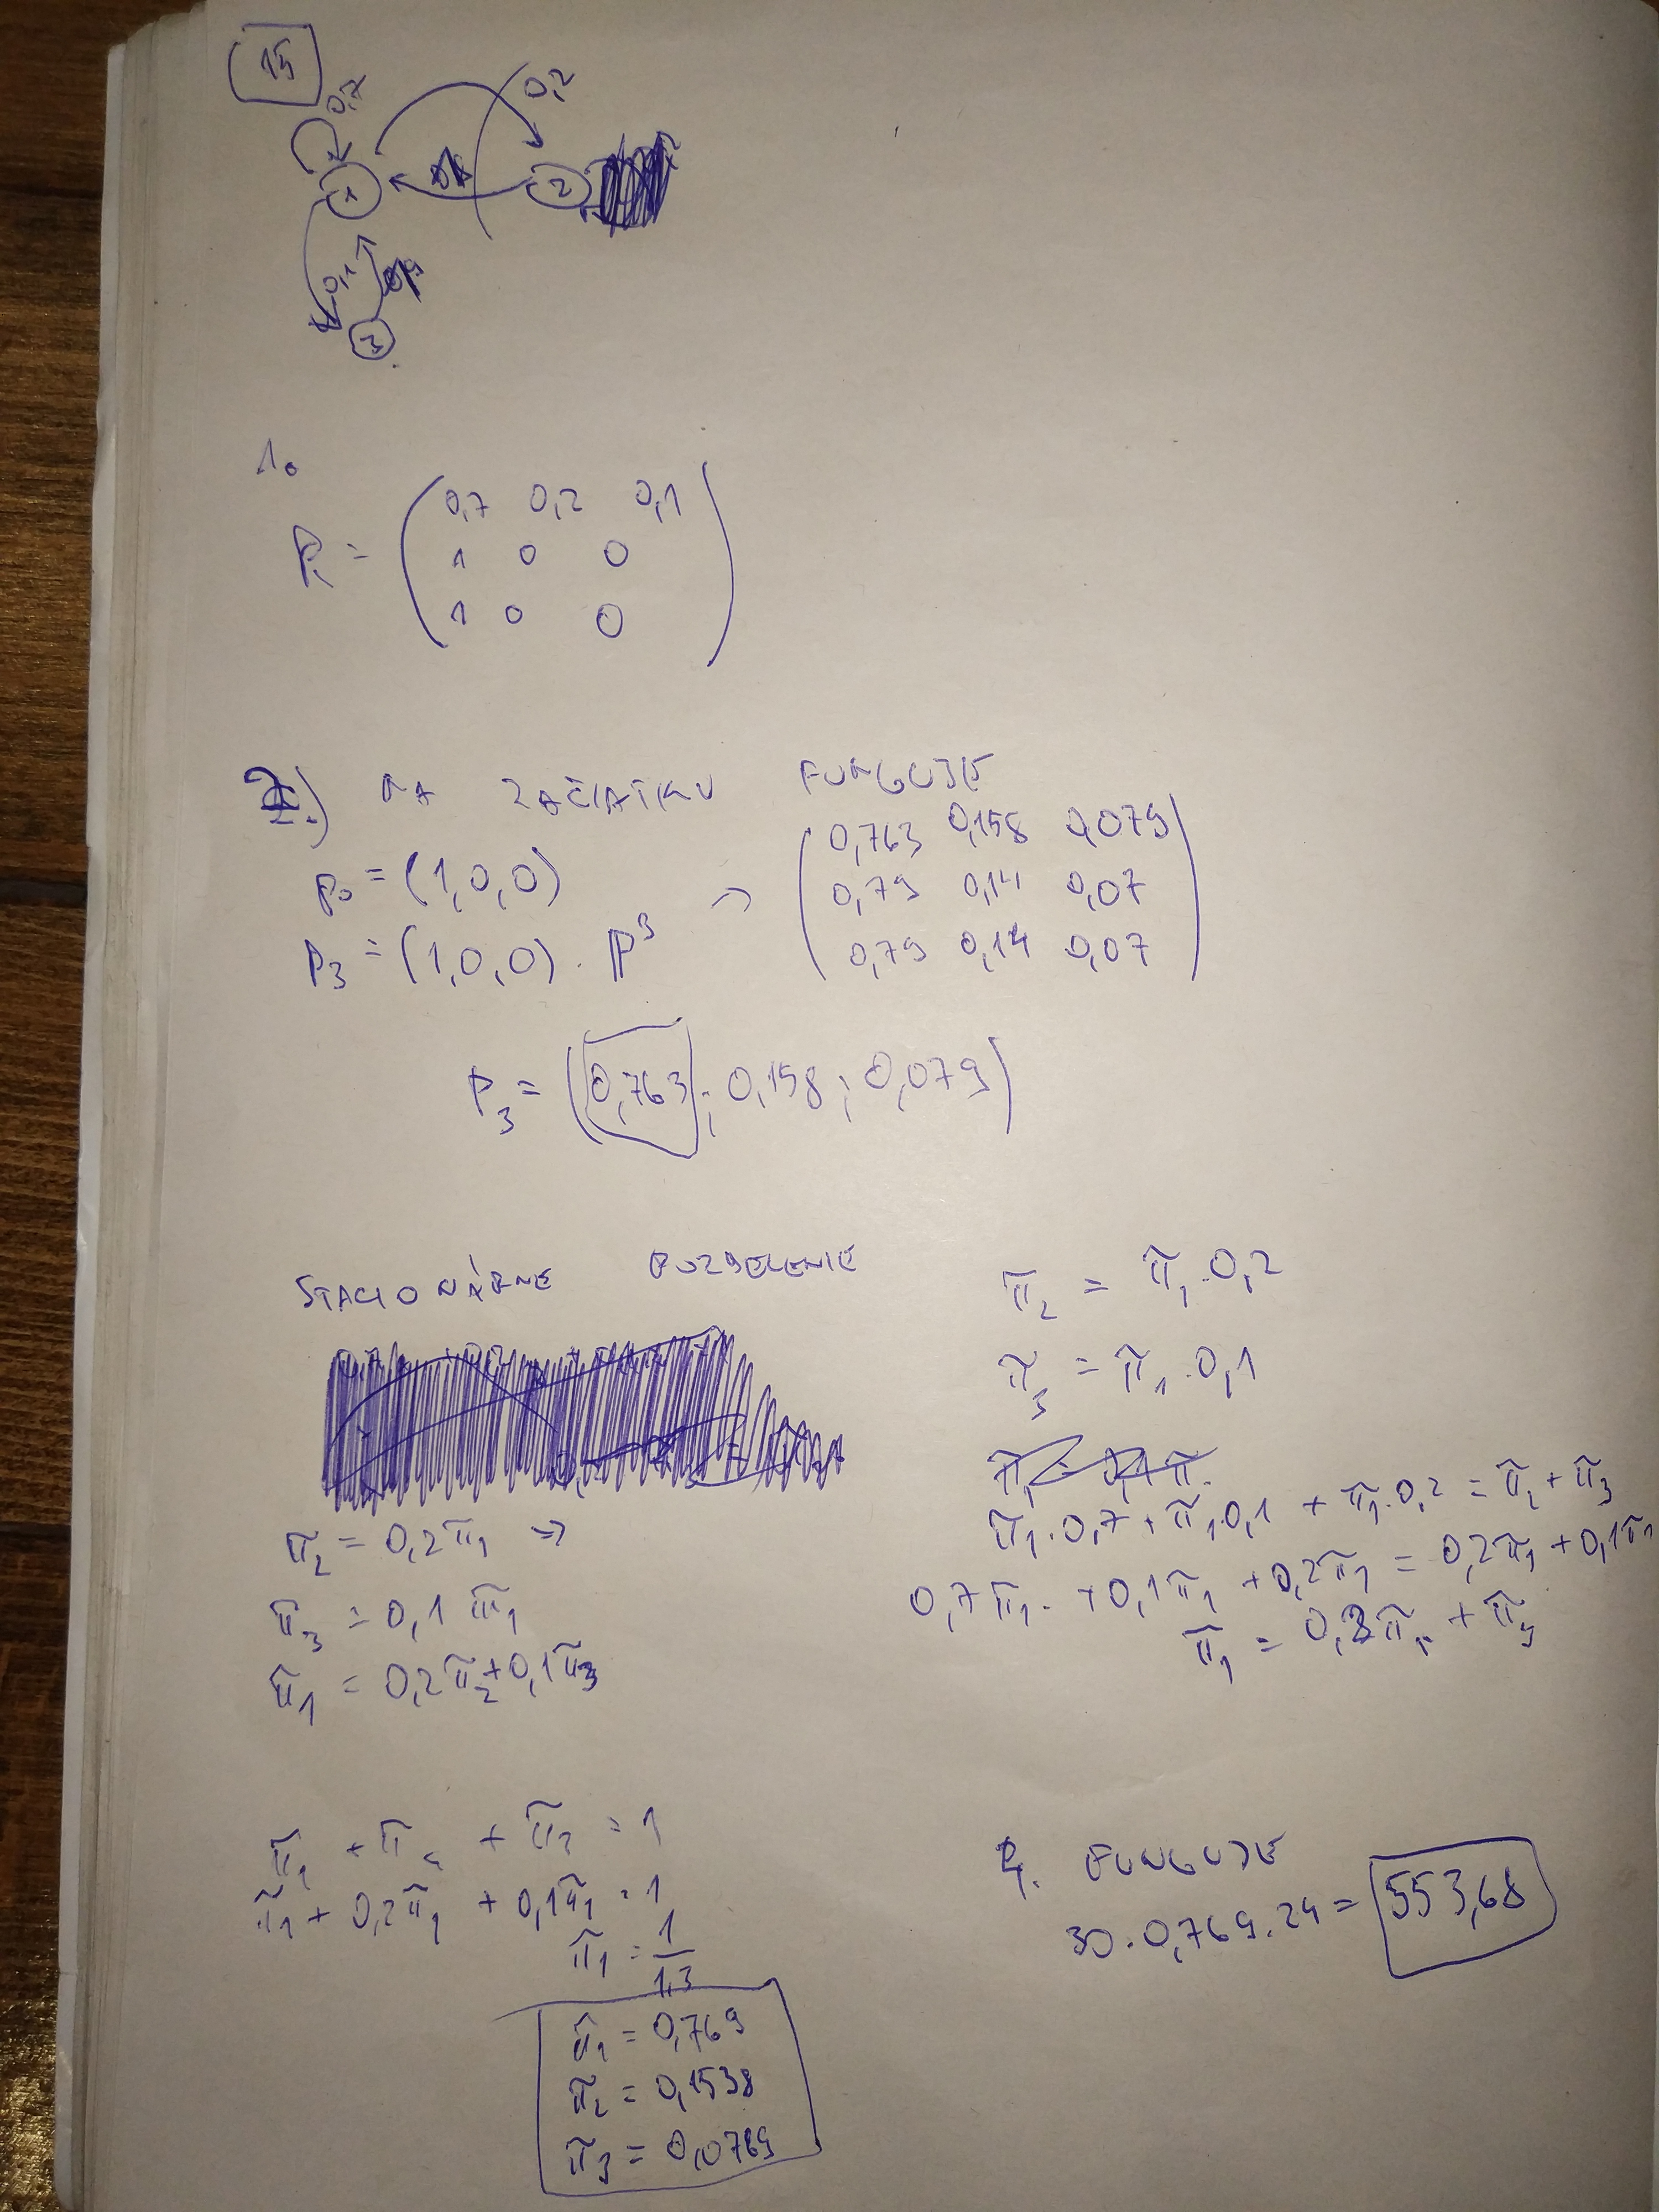 15
0,7
0,2
1
2
0,1
3
1.
P = ( 0,7 0,2 0,1
1 0 0
1 0 0 )
2.) NA ZAČIATKU FUNGUJE
p₀ = (1,0,0)
p₃ = (1,0,0) . P³ → ( 0,763 0,158 0,079
0,79 0,14 0,07
0,79 0,14 0,07 )
P₃ = (0,763 ; 0,158 ; 0,079)
STACIONÁRNE ROZDELENIE
π₂ = 0,2π₁ =>
π₃ = 0,1π₁
π₁ = 0,2π₂+0,1π₃
π₂ = π₁.0,2
π₃ = π₁.0,1
π₁.0,7 + π₁0,1 + π₁.0,2 = π₂ + π₃
0,7π₁. + 0,1π₁ + 0,2π₁ = 0,2π₁ + 0,1π₁
π₁ + 0,2π₁ + 0,1π₁ = 1
π₁ = 1/1,3
π₁ = 0,769
π₂ = 0,1538
π₃ = 0,0769
4. FUNGUJE
30.0,769.24 = 553,68